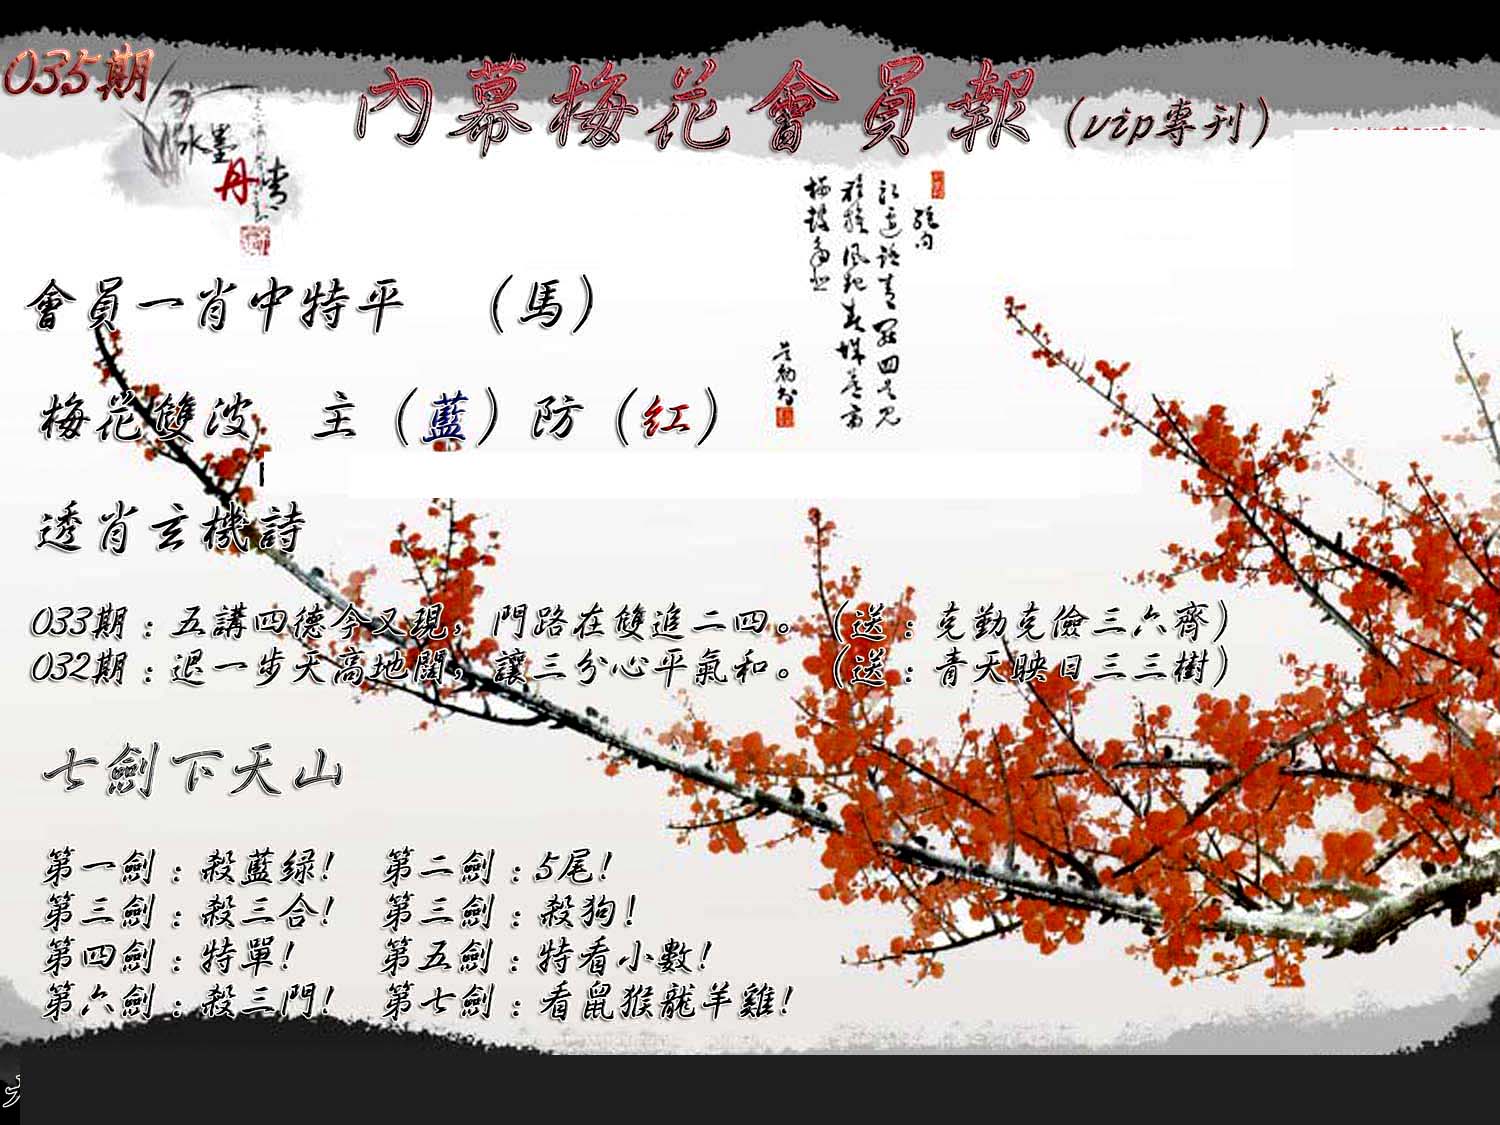 035期
內幕梅花會員報(vip專刊)
水墨
丹青
會員一肖中特平 (馬)
梅花雙波 主(藍)防(紅)
透肖玄機詩
033期:五講四德今又現,門路在雙進二四。(送:克勤克儉三六齊)
032期:退一步天高地闊,讓三分心平氣和。(送:青天映日三三樹)
七劍下天山
第一劍:殺藍綠! 第二劍:5尾!
第三劍:殺三合! 第三劍:殺狗!
第四劍:特單! 第五劍:特看小數!
第六劍:殺三門! 第七劍:看鼠猴龍羊雞!